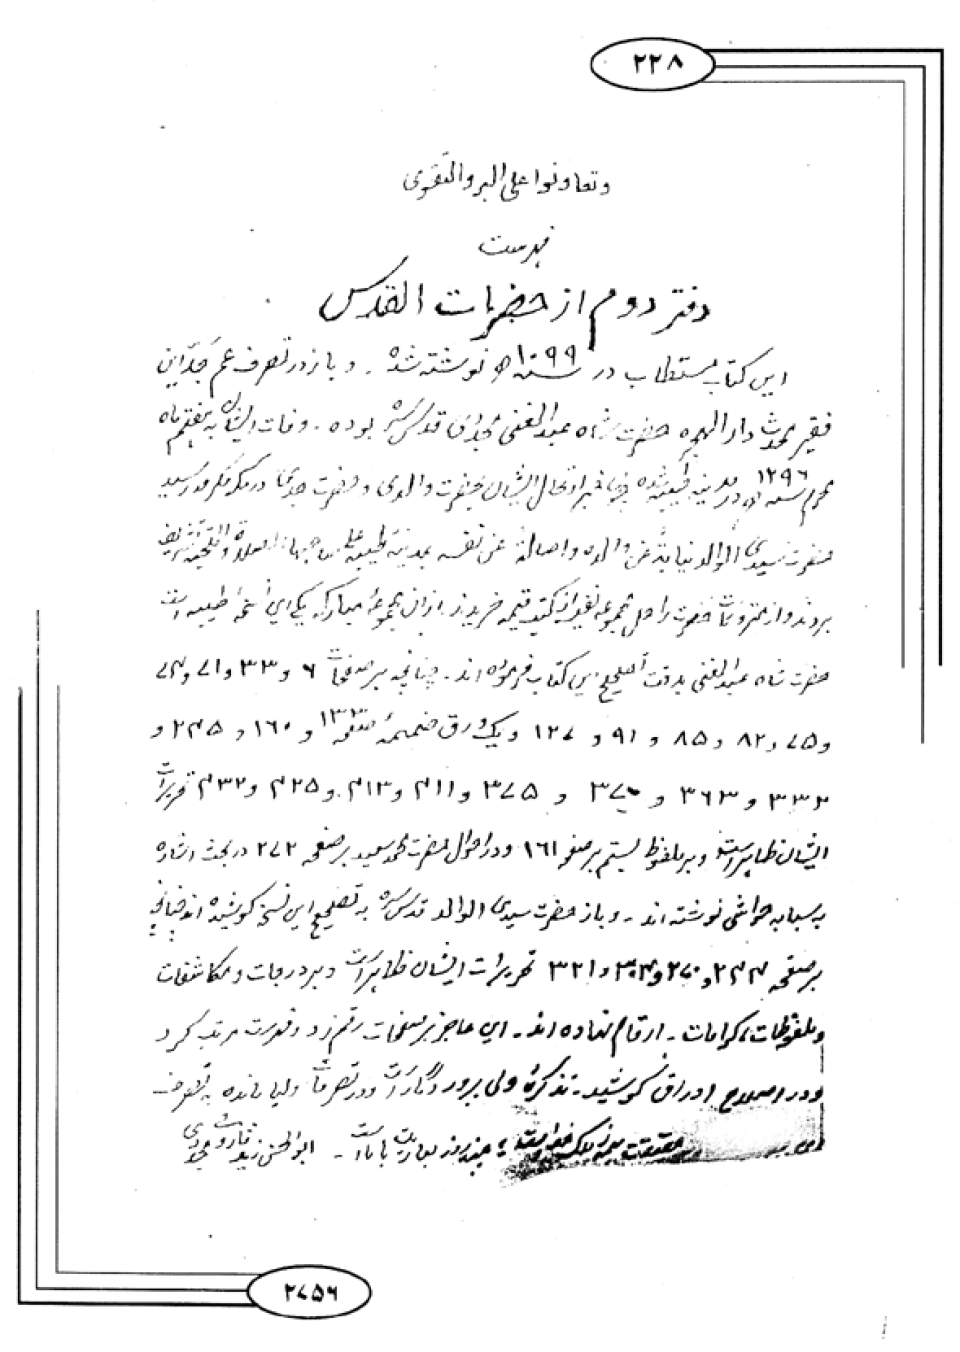 ۲۲۸
وتعاونوا علی البر والتقوی
فہرست
دفتر دوم از حضرات القدس
این کتاب مستطاب در سنہ ۱۰۹۹ھ نوشتہ شدہ ۔ و باز در تصرف عم جد این
فقیر محدث دار الہجرہ حضرت شاہ عبد الغنی مجددی قدس سرہ بودہ ۔ وفات ایشان بہ ہفتم ماہ
محرم سنہ ۱۲۹۶ھ در مدینہ طیبہ شدہ خبر ارتحال ایشان بحضرت والدی و حضرت جدی در مکہ مکرمہ رسید
حضرت سیدی الوالد نیابۃ عن والدہ و اصالۃ عن نفسہ بمدینہ طیبہ علی صاحبہا الصلاۃ والتحیۃ تشریف
بردند و از متروکات حضرت راحل مجموعہ از کتب قیمہ خریدند ازان مجموعہ مبارکہ یکی این نسخہ طیبہ است
حضرت شاہ عبد الغنی بدقت تصحیح این کتاب فرمودہ اند ۔ چنانچہ بر صفحات ۶ و ۳۳ و ۷۱ و ۷۴
و ۷۵ و ۸۲ و ۸۵ و ۹۱ و ۱۲۷ و یک ورق ضمیمہ صفحہ ۱۳۳ و ۱۶۰ و ۲۴۵ و
۳۳۲ و ۳۶۳ و ۳۷۶ و ۳۷۵ و ۴۱۱ و ۴۱۳ و ۴۲۵ و ۴۳۲ تحریرات
ایشان ظاہر است و بر ملفوظ بستم بر صفحہ ۱۶۱ و در احوال حضرت محمد سعید بر صفحہ ۲۷۲ در بحث اشارہ
بہ سبابہ حواشی نوشتہ اند ۔ و باز حضرت سیدی الوالد قدس سرہ بہ تصحیح این نسخہ کوشیدہ اند چنانچہ
بر صفحہ ۲۴۴ و ۲۷۰ و ۳۰۴ و ۳۲۱ تحریرات ایشان ظاہر است و بر درجات و مکاشفات
و ملفوظات و کرامات ۔ ارقام نہادہ اند ۔ این عاجز بر صفحات رقم زد و فہرست مرتب کرد
و در اصلاح اوراق کوشید ۔ تذکرہ ولی پرور دگار است و در تصرفات ولیا ماندہ بہ تصرف
حقیقت چند روز بعاریت با ماست ۔ ابو الحسن زید فاروقی مجددی
۲۷۵۶